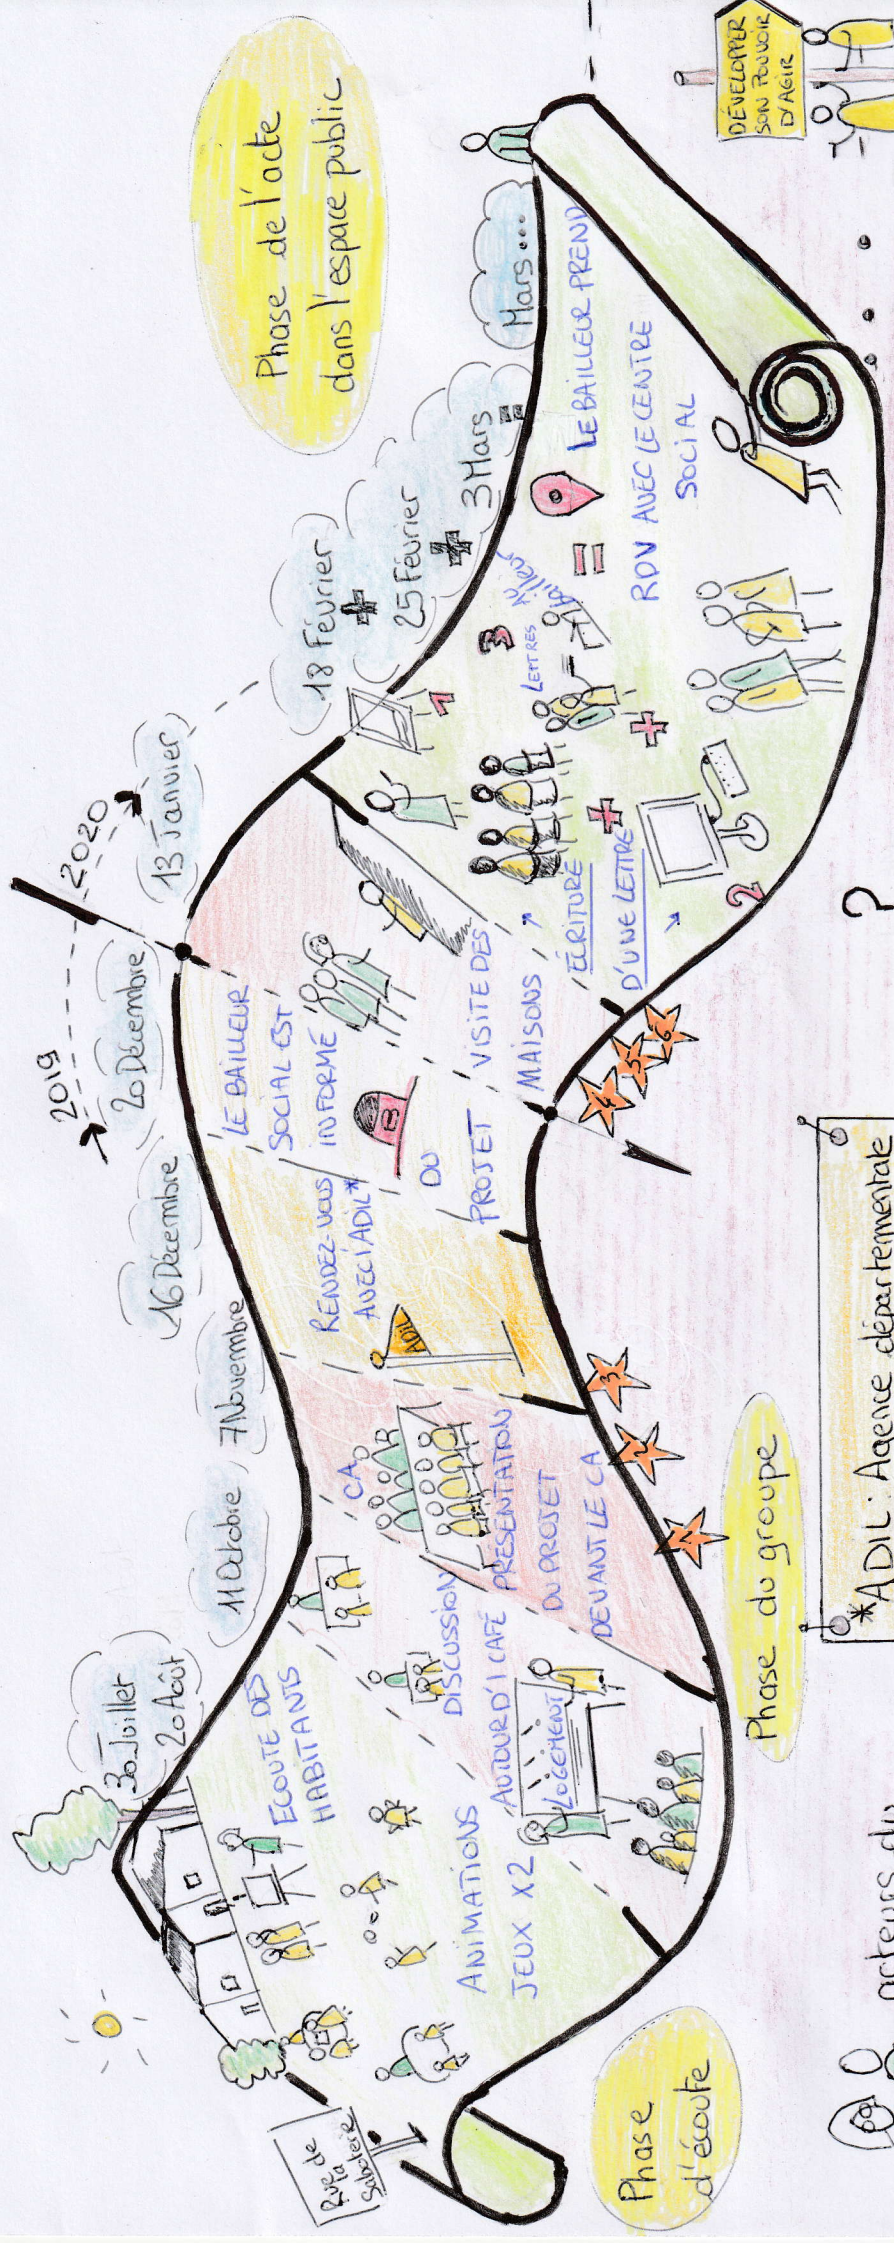 Rue de
la
Saboterie
Phase
d'écoute
30 Juillet
20 Août
ECOUTE DES
HABITANTS
ANIMATIONS
JEUX X2
11 Octobre
DISCUSSION
AUTOUR D'1 CAFÉ
LOGEMENT
7 Novembre
CA
PRÉSENTATION
DU PROJET
DEVANT LE CA
1
2
3
Phase du groupe
16 Décembre
RENDEZ-VOUS
AVEC l'ADIL*
ADIL
2019
20 Décembre
LE BAILLEUR
SOCIAL EST
INFORMÉ
DU
PROJET
2020
13 Janvier
VISITE DES
MAISONS
4
5
6
18 Février
+
25 Février
+
3 Mars
=
1
ÉCRITURE
D'UNE LETTRE
2
+
+
3
LETTRES
=
Mars...
LE BAILLEUR PREND
RDV AVEC LE CENTRE
SOCIAL
Phase de l'acte
dans l'espace public
DÉVELOPPER
SON POUVOIR
D'AGIR
?
*ADIL: Agence départementale
acteurs du